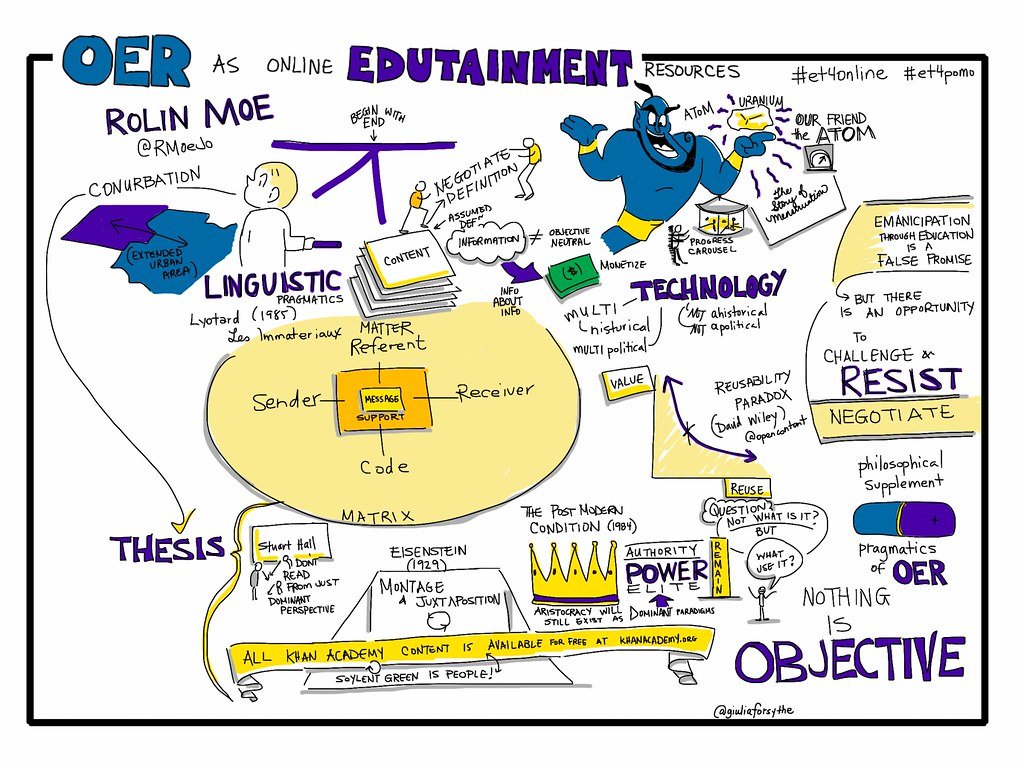 OER AS ONLINE EDUTAINMENT RESOURCES
#et4online #et4pomo
ROLIN MOE
@RMoeJo
CONURBATION
(EXTENDED
URBAN
AREA)
BEGIN WITH
END
NEGOTIATE
DEFINITION
ASSUMED
DEFN
INFORMATION
≠ OBJECTIVE
NEUTRAL
CONTENT
INFO
ABOUT
INFO
($)
MONETIZE
LINGUISTIC
PRAGMATICS
Lyotard (1985)
Les Immateriaux
ATOM
URANIUM
OUR FRIEND
the ATOM
the
Story of
menstruation
PROGRESS
CAROUSEL
TECHNOLOGY
MULTI
historical
MULTI political
NOT ahistorical
NOT apolitical
EMANICIPATION
THROUGH EDUCATION
IS A
FALSE PROMISE
BUT THERE
IS AN OPPORTUNITY
TO
CHALLENGE &
RESIST
NEGOTIATE
MATTER
Referent
Sender
MESSAGE
SUPPORT
Receiver
Code
MATRIX
VALUE
REUSABILITY
PARADOX
(David Wiley)
@opencontent
REUSE
philosophical
supplement
pragmatics
of OER
THESIS
Stuart Hall
DON'T
READ
FROM JUST
DOMINANT
PERSPECTIVE
EISENSTEIN
(1929)
MONTAGE
& JUXTAPOSITION
THE POST MODERN
CONDITION (1984)
ARISTOCRACY WILL
STILL EXIST AS
AUTHORITY
POWER
ELITE
DOMINANT PARADIGMS
REMAIN
QUESTION:
NOT WHAT IS IT?
BUT
WHAT
USE IT?
NOTHING
IS
OBJECTIVE
ALL KHAN ACADEMY CONTENT IS AVAILABLE FOR FREE AT KHANACADEMY.ORG
SOYLENT GREEN IS PEOPLE!
@giuliaforsythe